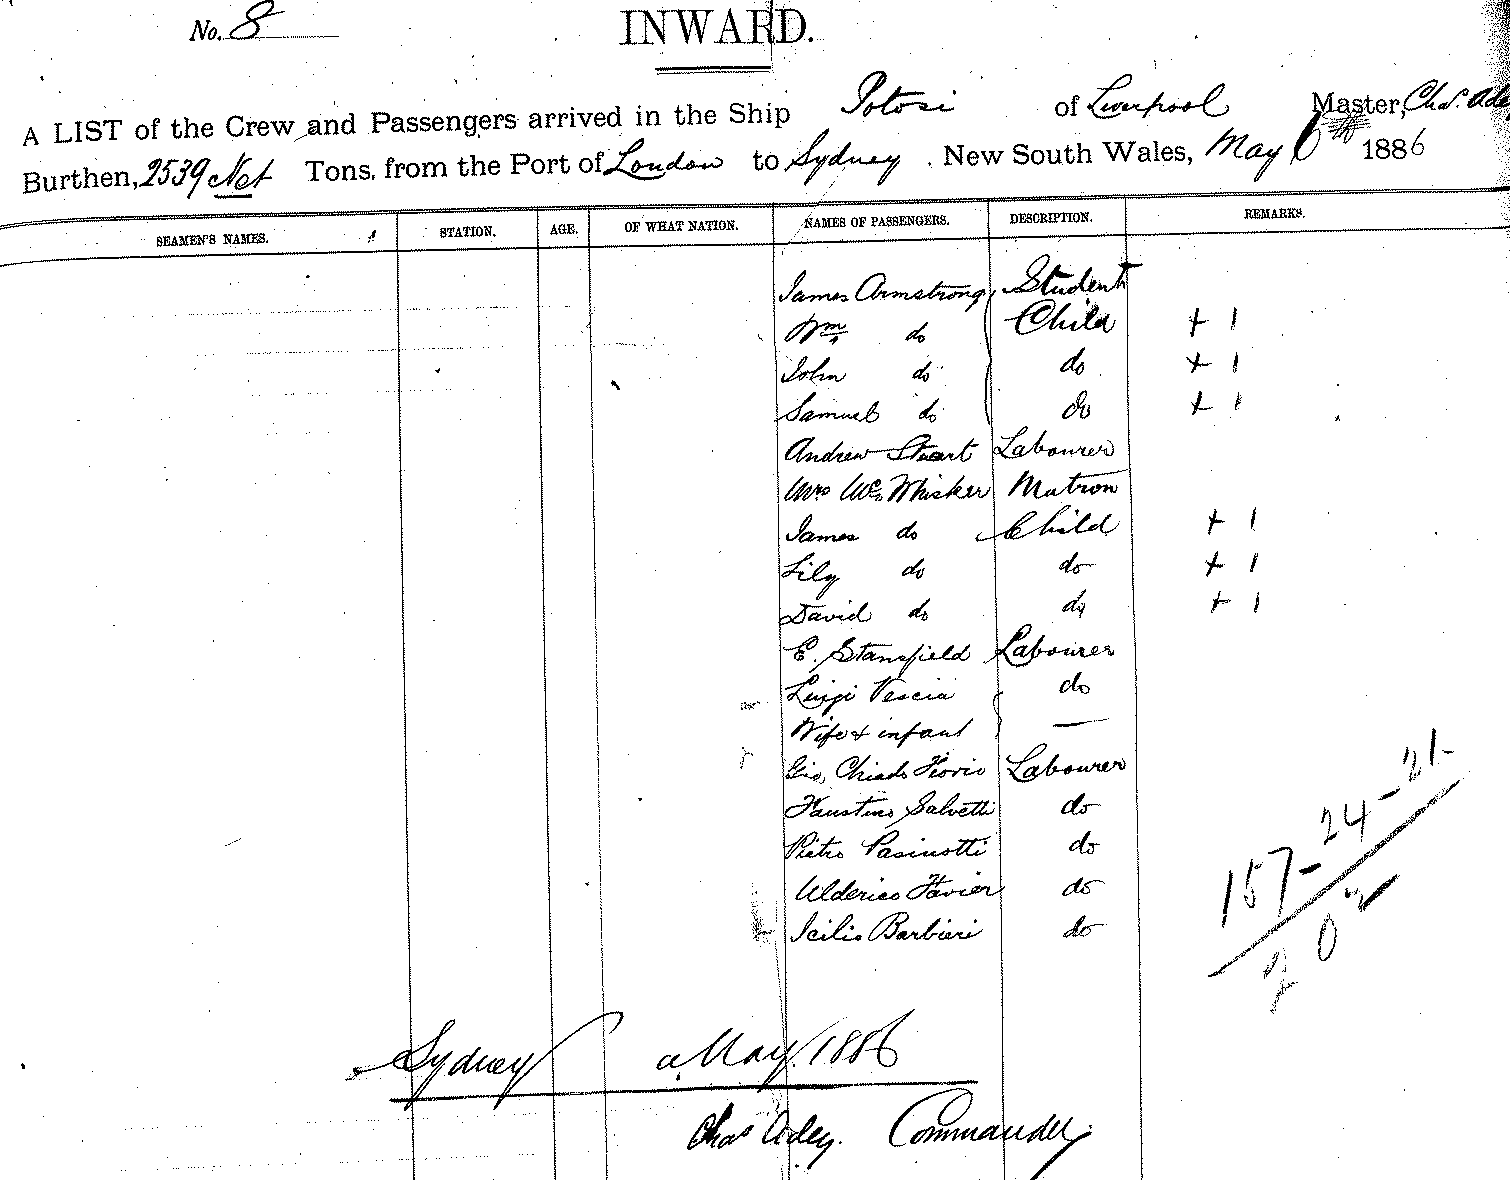 No. 8
INWARD.
A LIST of the Crew and Passengers arrived in the Ship Potosi of Liverpool Master, Chas.
Burthen, 2539 Net Tons, from the Port of London to Sydney, New South Wales, May 6th 1886
SEAMEN'S NAMES. STATION. AGE. OF WHAT NATION. NAMES OF PASSENGERS. DESCRIPTION. REMARKS.
James Armstrong Student
Wm do Child + 1
John do do + 1
Samuel do do + 1
Andrew Stuart Labourer
Mrs McWhisker Matron
James do Child + 1
Lily do do + 1
David do do + 1
E. Stansfield Labourer
Luigi Vescia do
Wife & infant —
Gio, Chiado Fiorio Labourer
Faustino Salvetti do
Pietro Pasinotti do
Ulderico Favier do
Icilio Barbieri do
157-24-21-
20
Sydney May 1886
Chas Commander